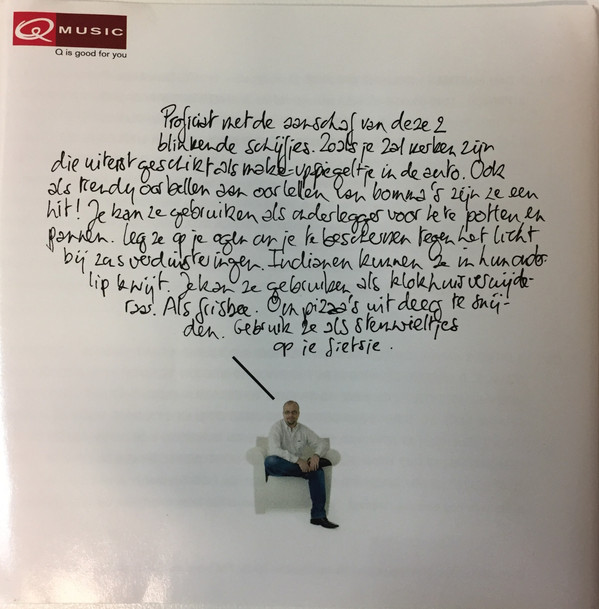 Q MUSIC
Q is good for you
Proficiat met de aanschaf van deze 2
blinkende schijfjes. Zoals je zal merken zijn
die uiterst geschikt als make-upspiegeltje in de auto. Ook
als trendy oorbellen aan oorlellen van bomma's zijn ze een
hit! Je kan ze gebruiken als onderlegger voor hete potten en
pannen. Leg ze op je ogen om je te beschermen tegen het licht
bij zonsverduisteringen. Indianen kunnen ze in hun onder-
lip kwijt. Je kan ze gebruiken als klokhuisverwijde-
raar. Als frisbee. Om pizza's uit deeg te snij-
den. Gebruik ze als steunwieltjes
op je fietsje.